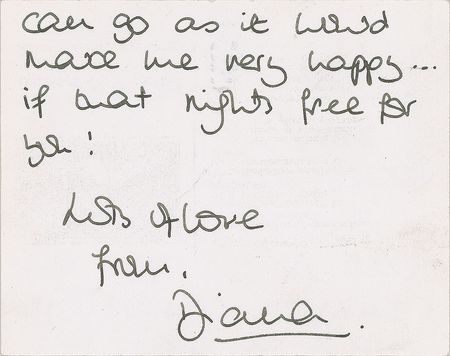 can go as it would
make me very happy...
if that nights free for
you!
Lots of love
from,
Diana.